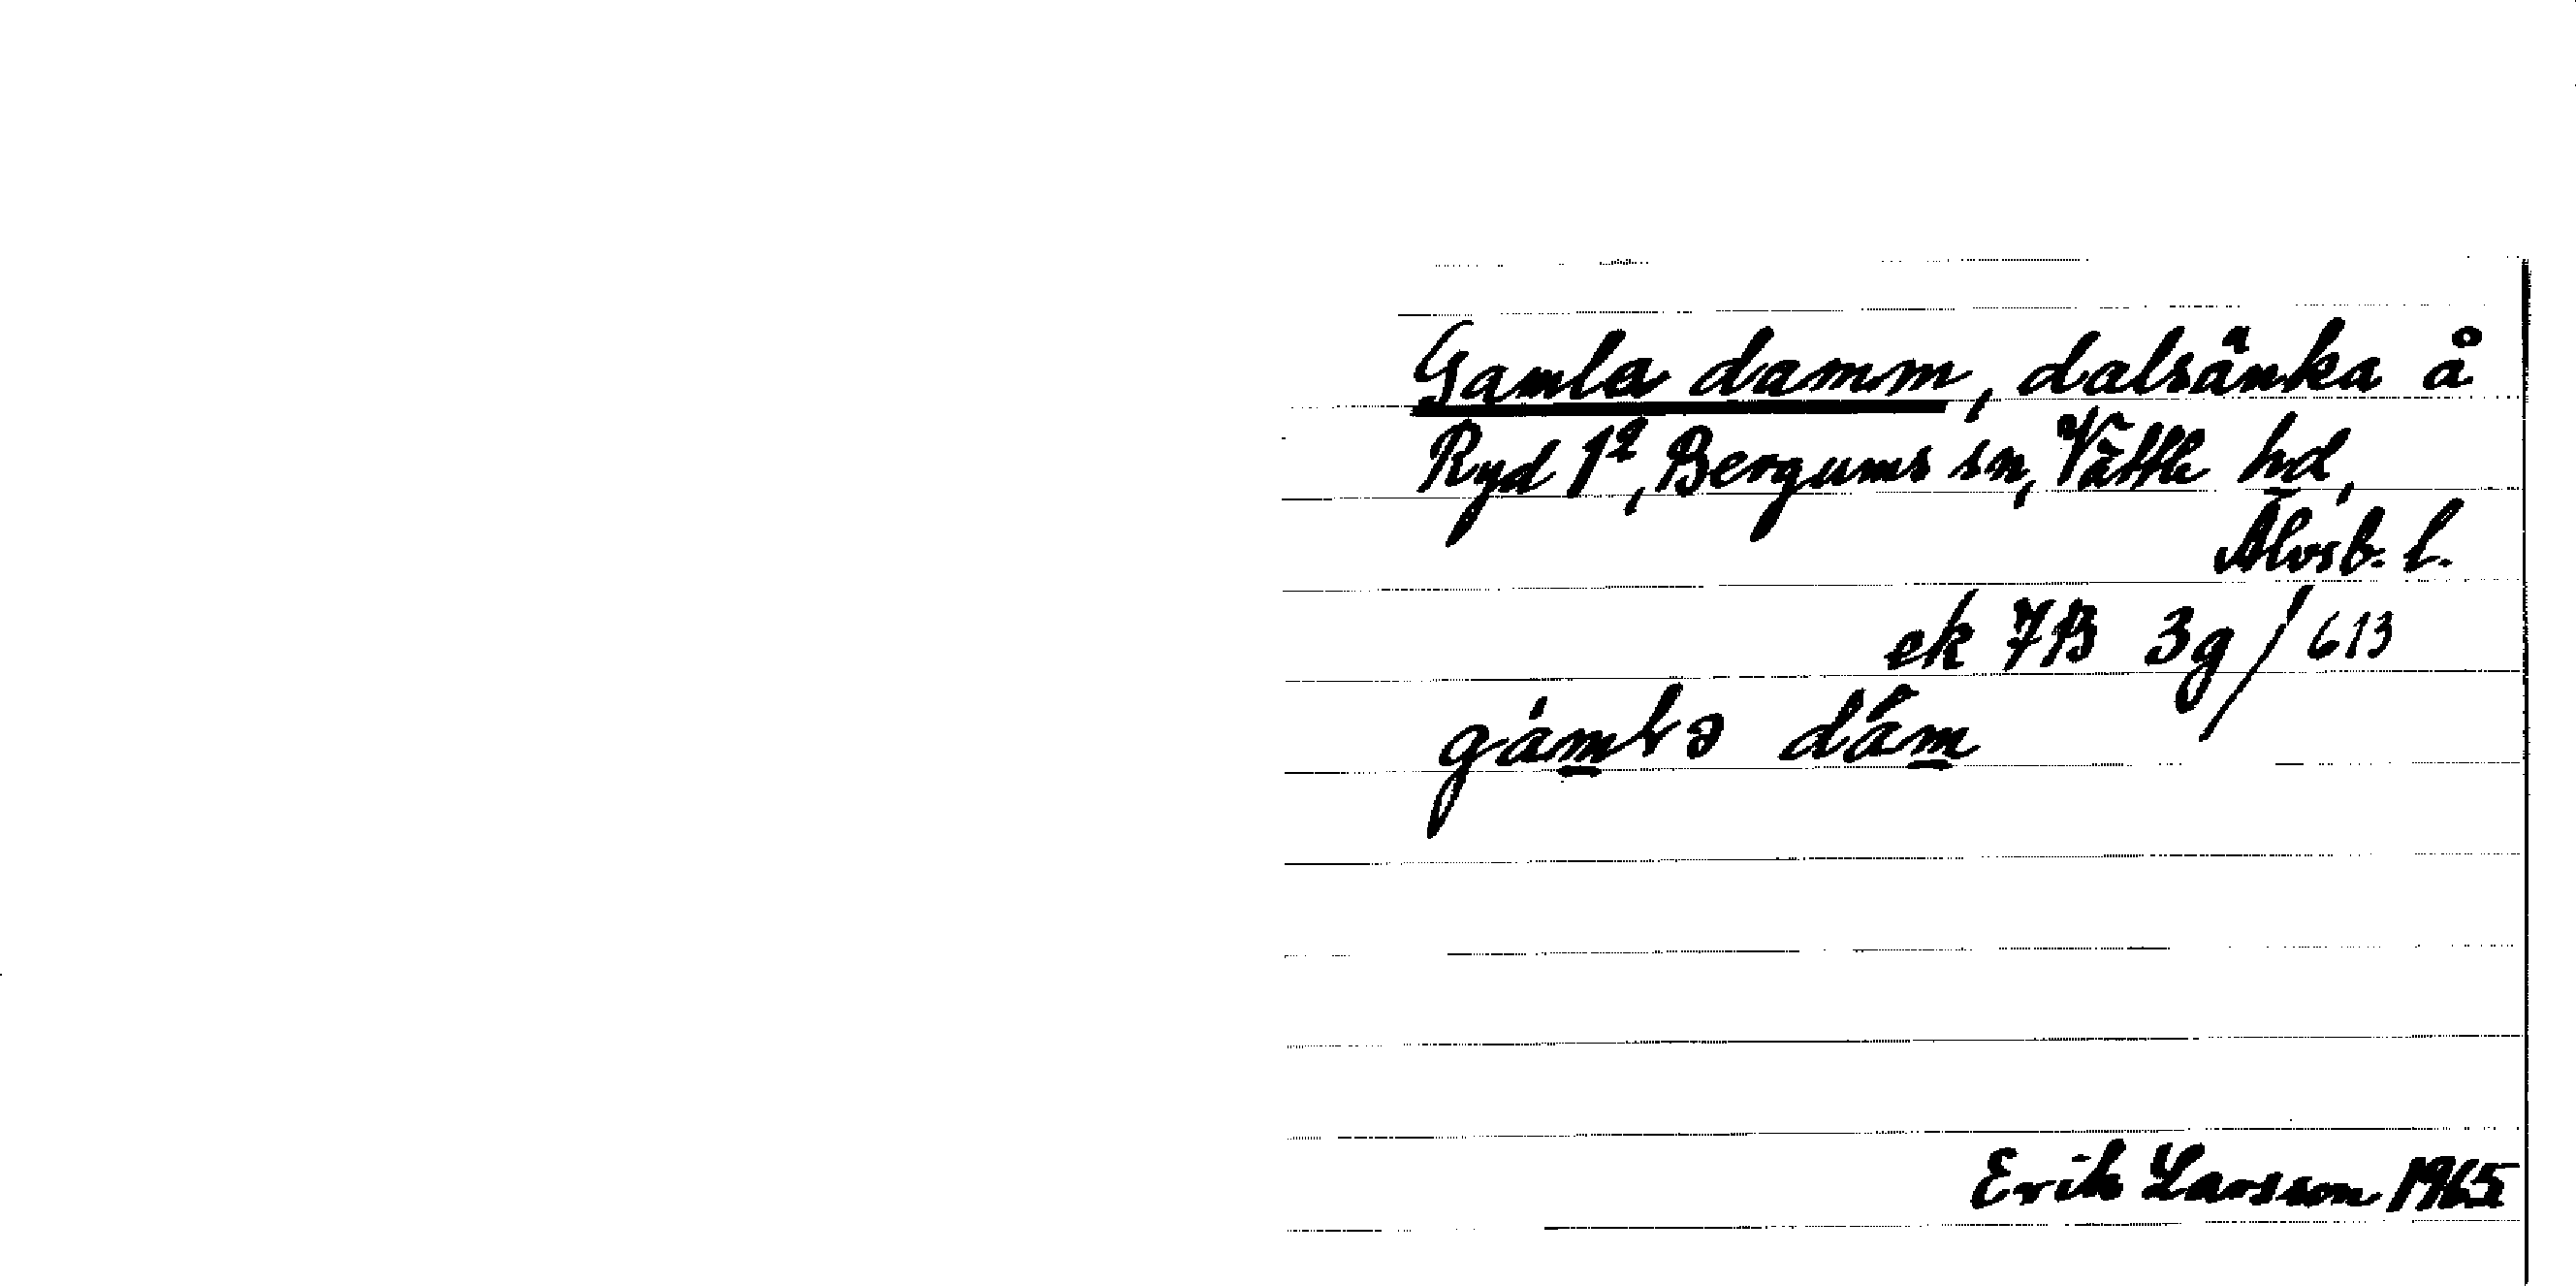 Gamla damm, dalsänka å
Ryd 1², Bergums sn, Vättle hd,
Älvsb. l.
ek 7B 3g/613
gámlə dám
Erik Larsson 1965